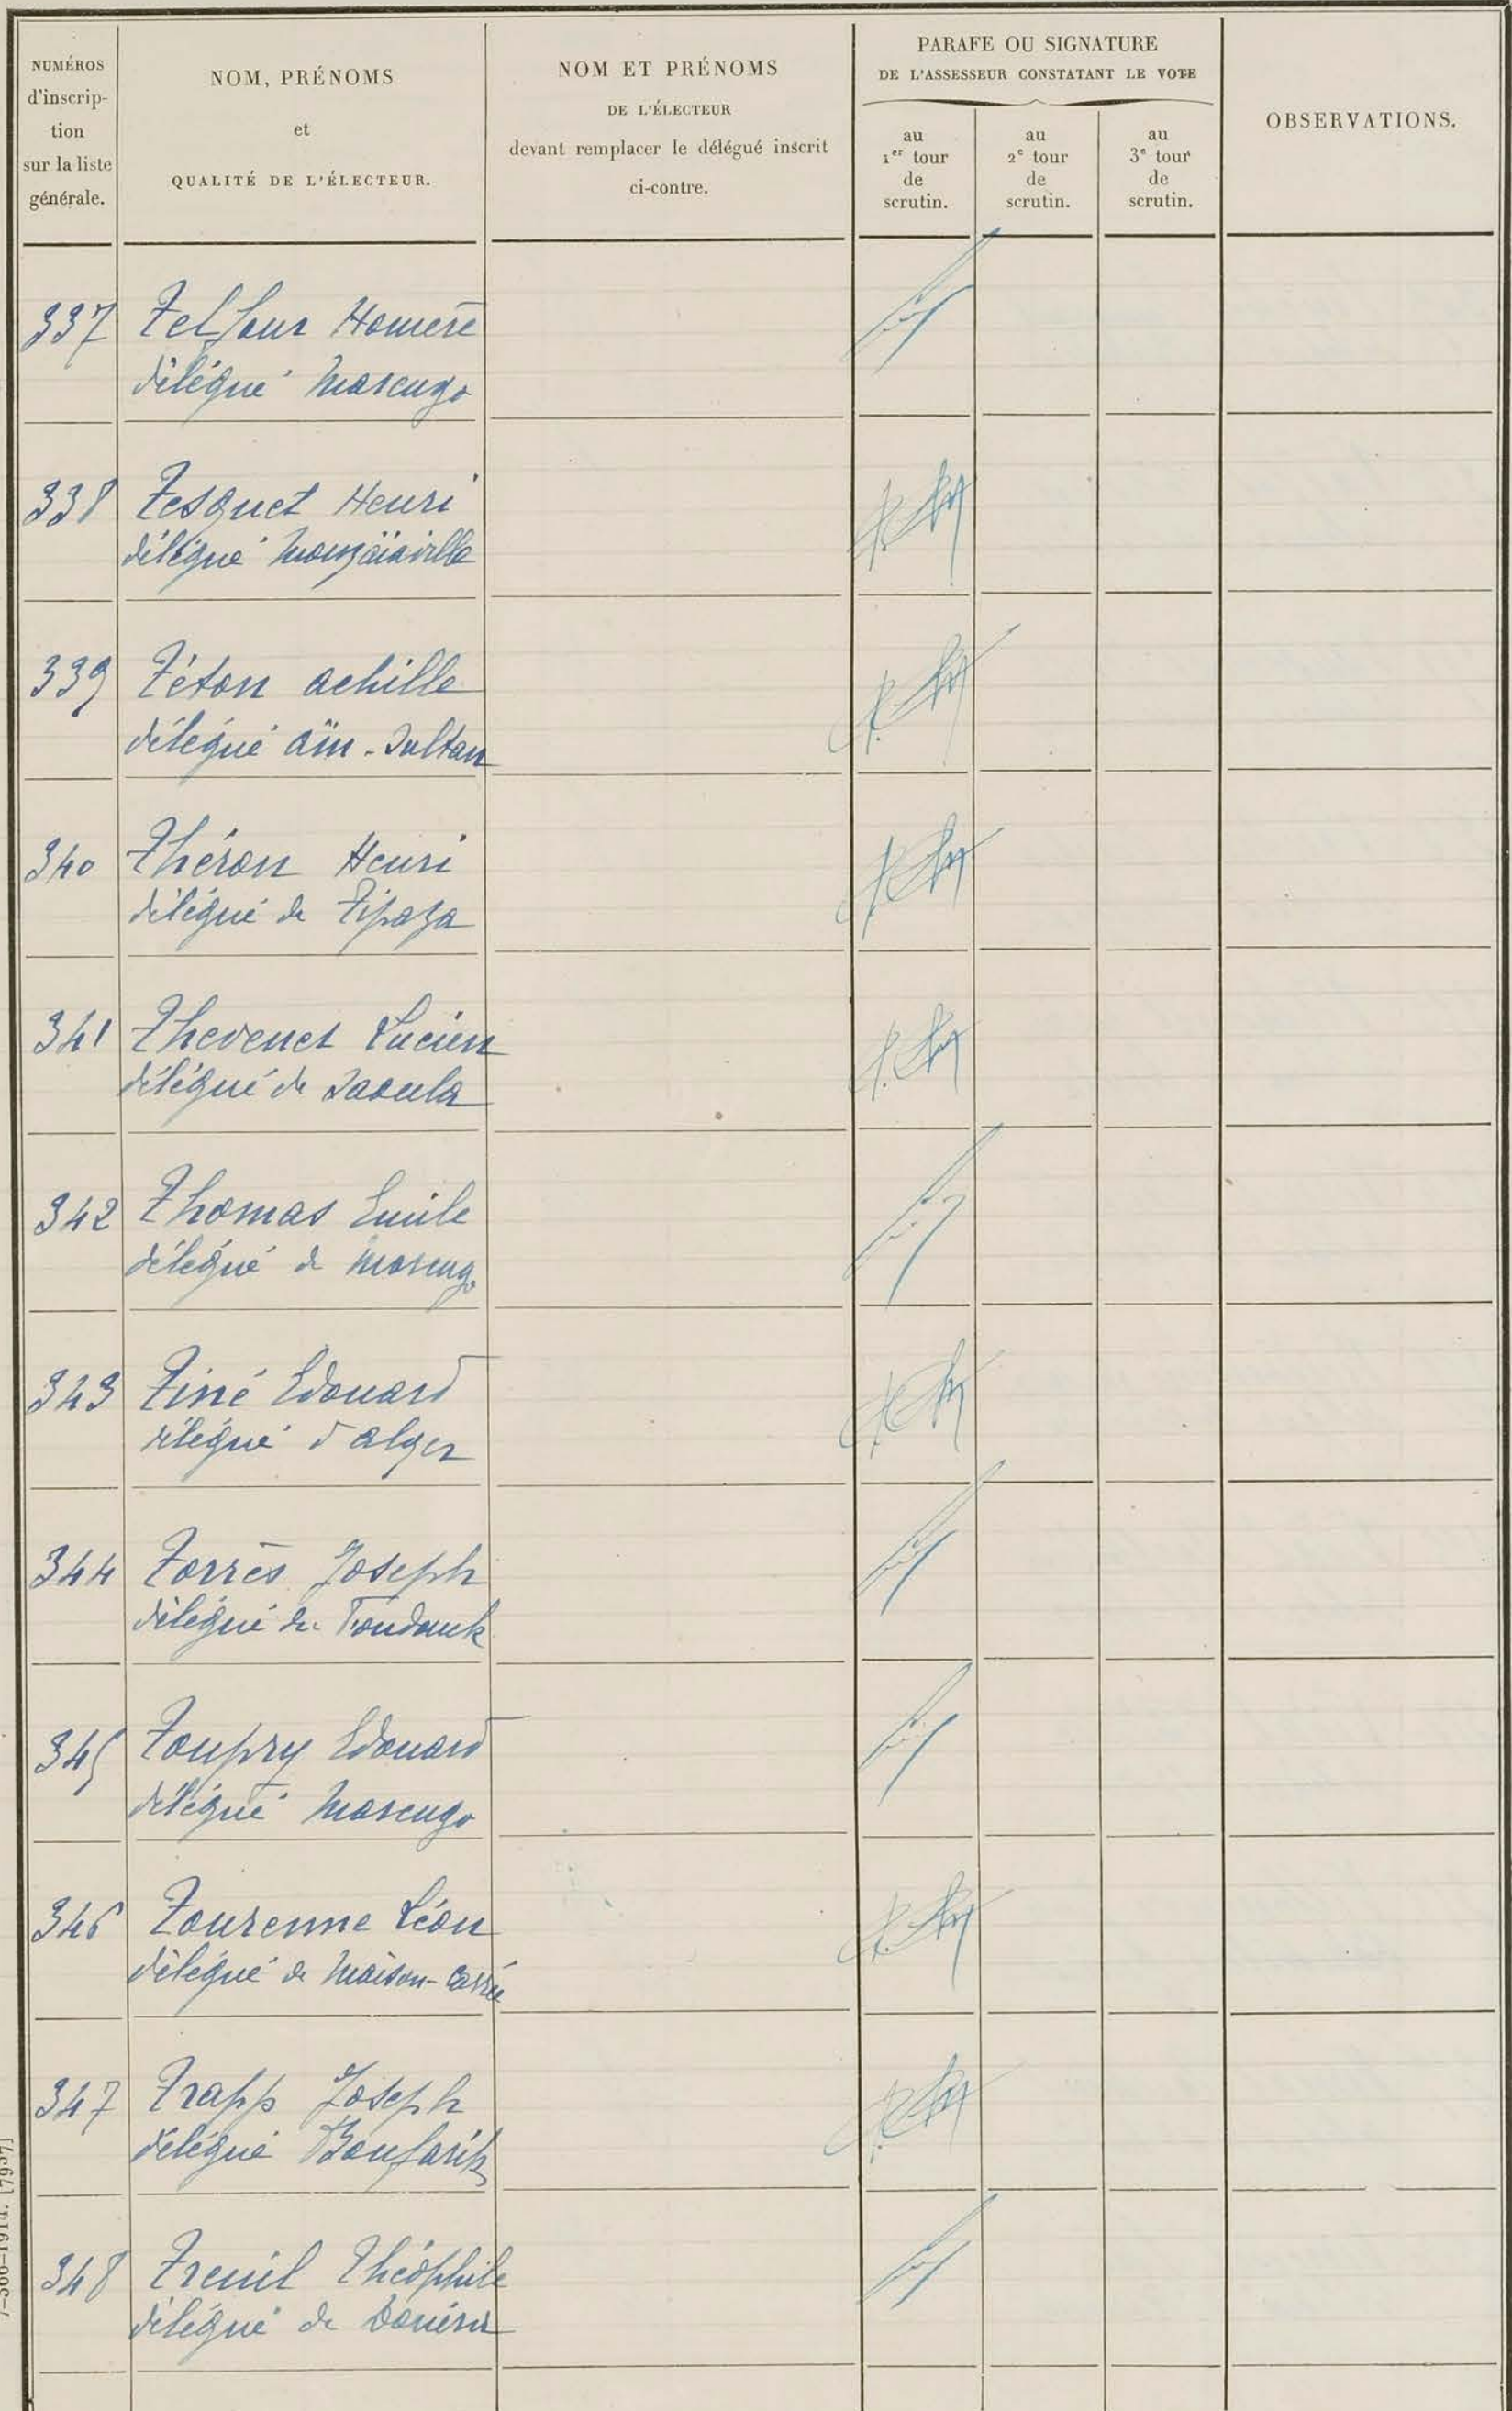 NUMÉROS
d'inscrip-
tion
sur la liste
générale.
NOM, PRÉNOMS
et
QUALITÉ DE L'ÉLECTEUR.
NOM ET PRÉNOMS
DE L'ÉLECTEUR
devant remplacer le délégué inscrit
ci-contre.
PARAFE OU SIGNATURE
DE L'ASSESSEUR CONSTATANT LE VOTE
au
1er tour
de
scrutin.
au
2e tour
de
scrutin.
au
3e tour
de
scrutin.
OBSERVATIONS.
337 Telfour Homère
délégué Marengo
338 Tesquet Henri
délégué Mouzaïaville
339 Téton Achille
délégué Aïn-Sultan
340 Théron Henri
délégué de Tipaza
341 Thevenet Lucien
délégué de Saoula
342 Thomas Emile
délégué de Marengo
343 Tiné Edouard
délégué d'Alger
344 Torrès Joseph
délégué du Fondouk
345 Toupry Edouard
délégué Marengo
346 Tourenne Léon
délégué de Maison-Carrée
347 Trapp Joseph
délégué Boufarik
348 Treuil Théophile
délégué de Douéra
7-366-1914. [7957]